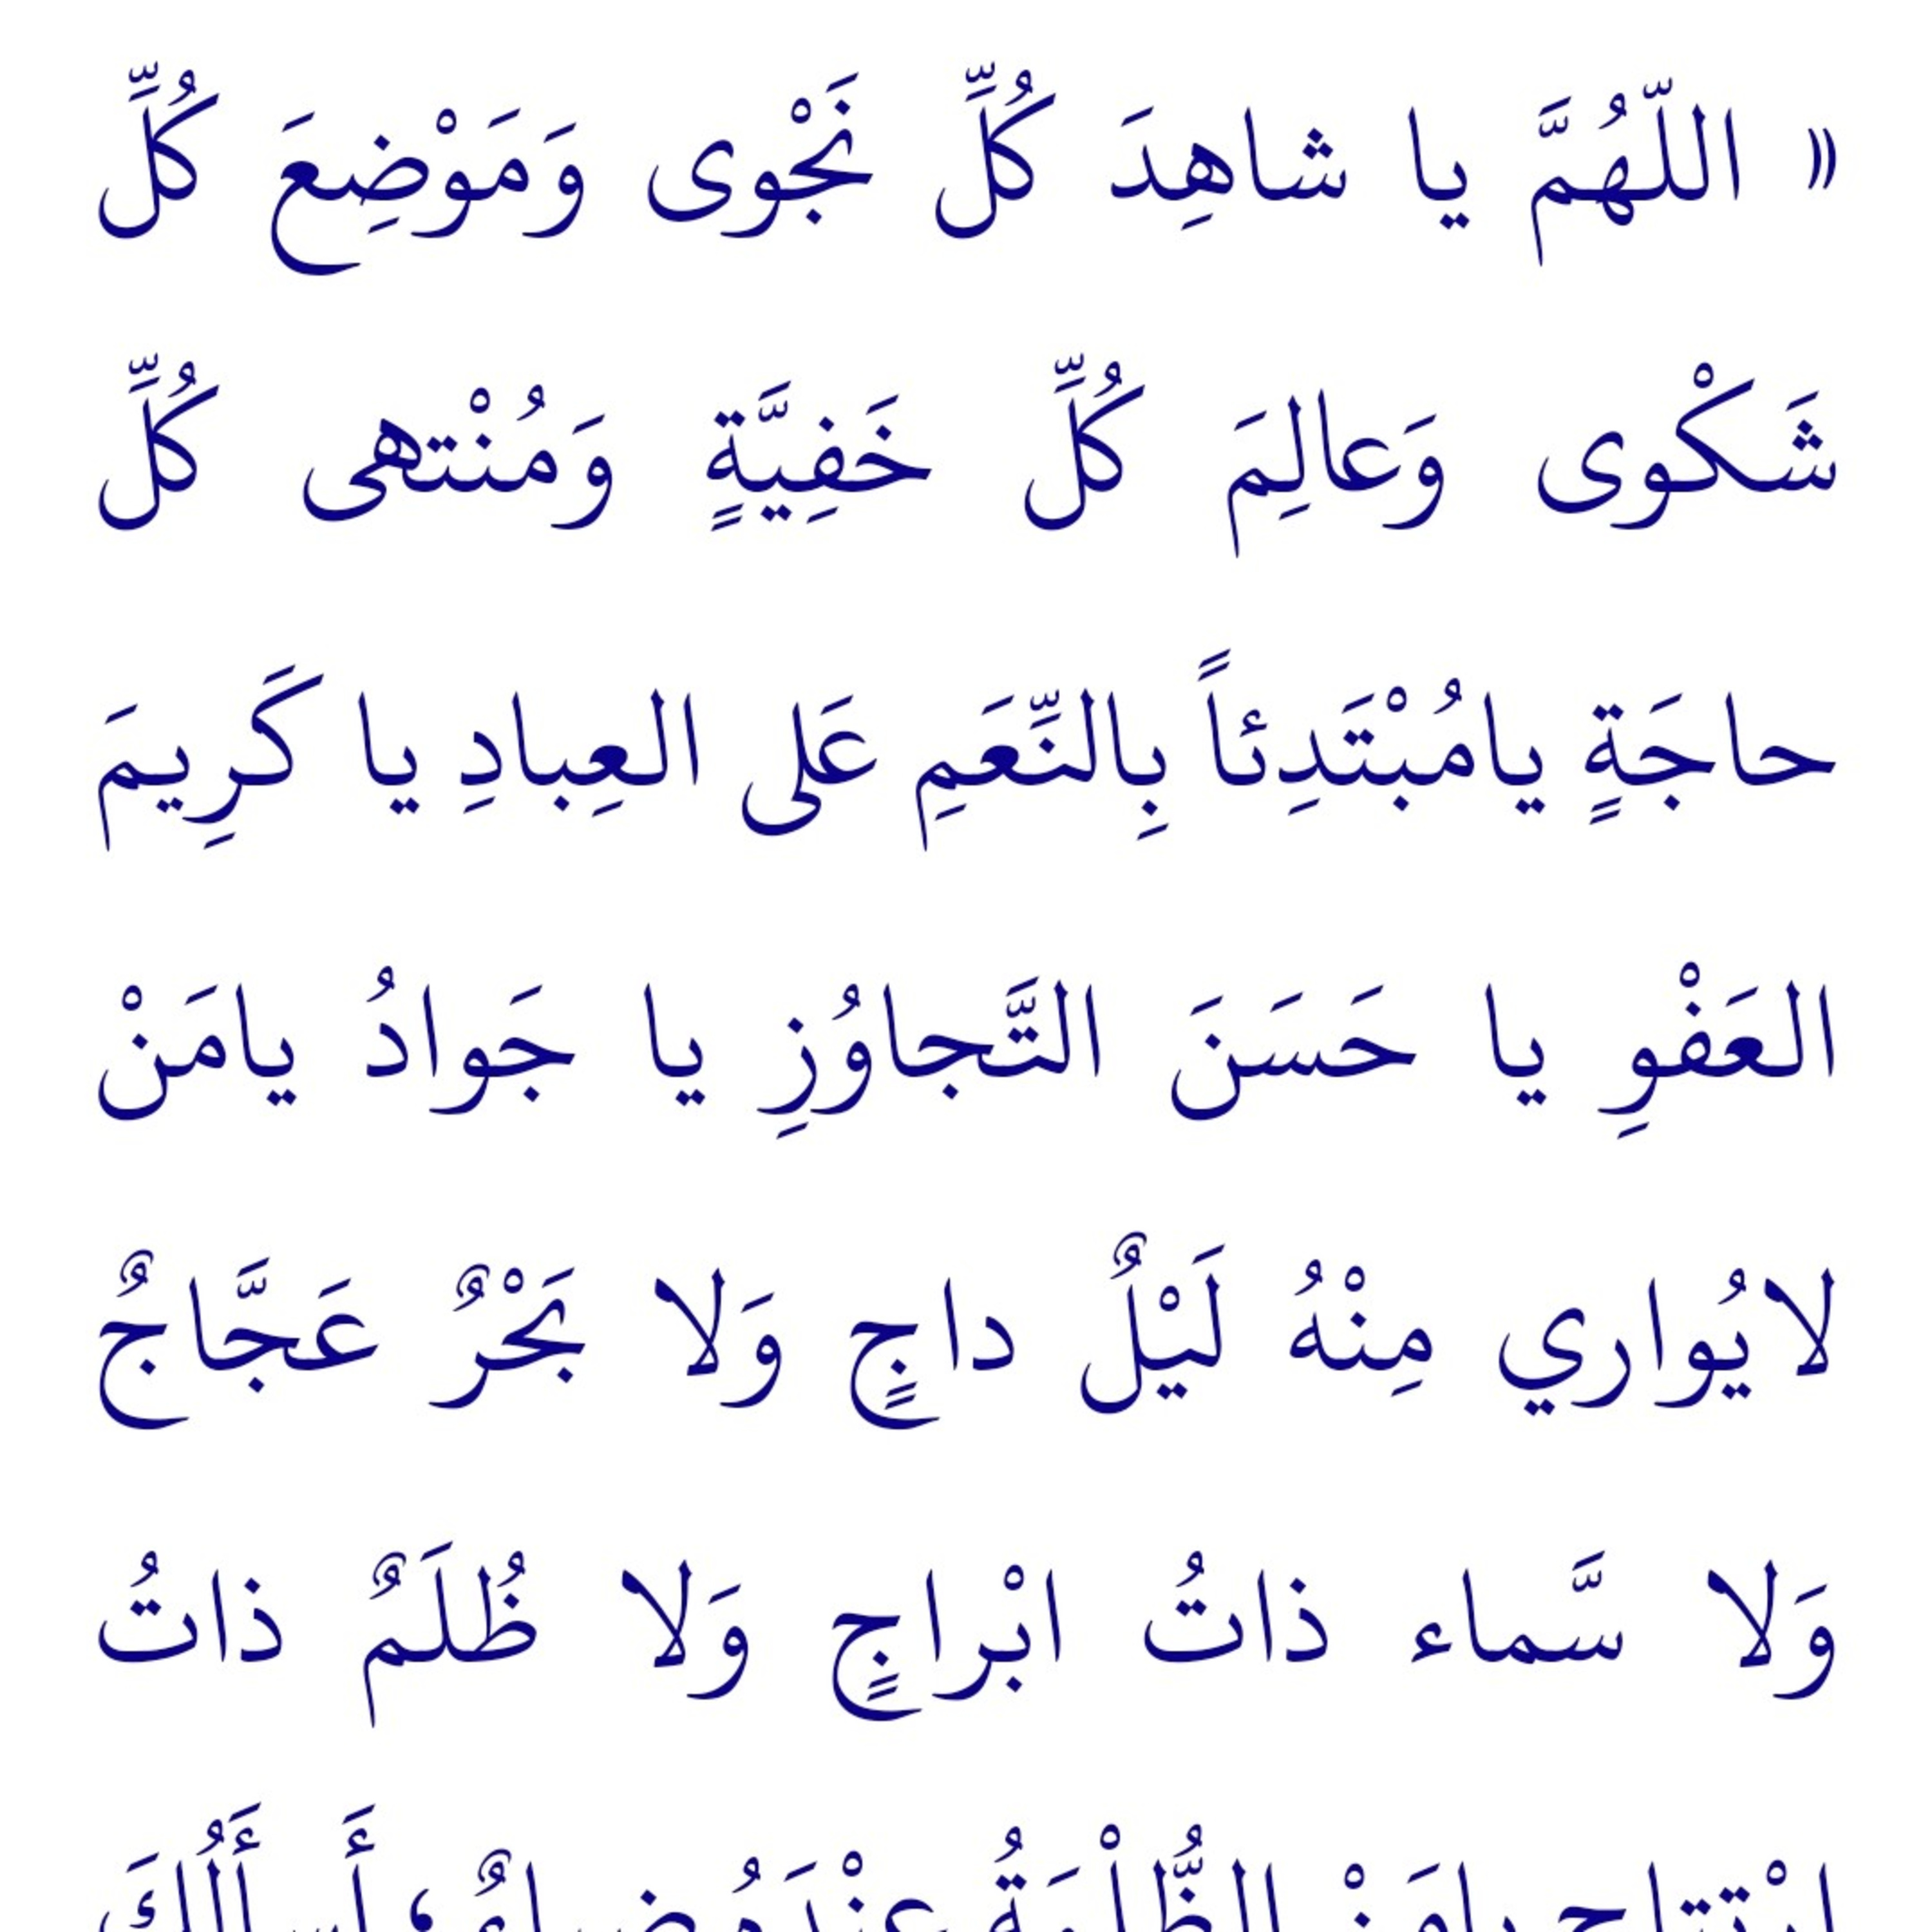 « اللّهُمَّ يا شاهِدَ كُلِّ نَجْوى وَمَوْضِعَ كُلِّ
شَكْوى وَعالِمَ كُلِّ خَفِيَّةٍ وَمُنْتَهى كُلِّ
حاجَةٍ يامُبْتَدِئاً بِالنِّعَمِ عَلى العِبادِ يا كَرِيمَ
العَفْوِ يا حَسَنَ التَّجاوُزِ يا جَوادُ يامَنْ
لايُواري مِنْهُ لَيْلٌ داجٍ وَلا بَحْرٌ عَجَّاجٌ
وَلا سَّماء ذاتُ ابْراجٍ وَلا ظُلَمٌ ذاتُ
ارْتتاج يامَنْ الظُّلْمَةُ عِنْدَهُ ضِياءٌ ؛ أَسأَلُكَ